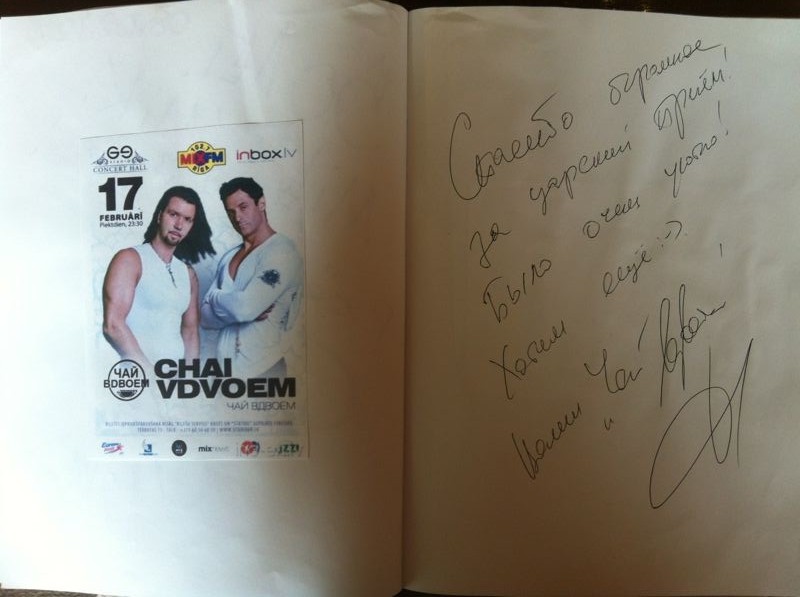 GS
STUDIO
CONCERT HALL
102.7
MIXFM
RIGA
inbox.lv
17
FEBRUĀRĪ
Piektdien, 23:30
ЧАЙ
ВДВОЕМ
CHAI
VDVOEM
ЧАЙ ВДВОЕМ
Спасибо огромное,
за царский приём!
Было очень уютно!
Хотим ещё :-).
Чай вдвоём
и